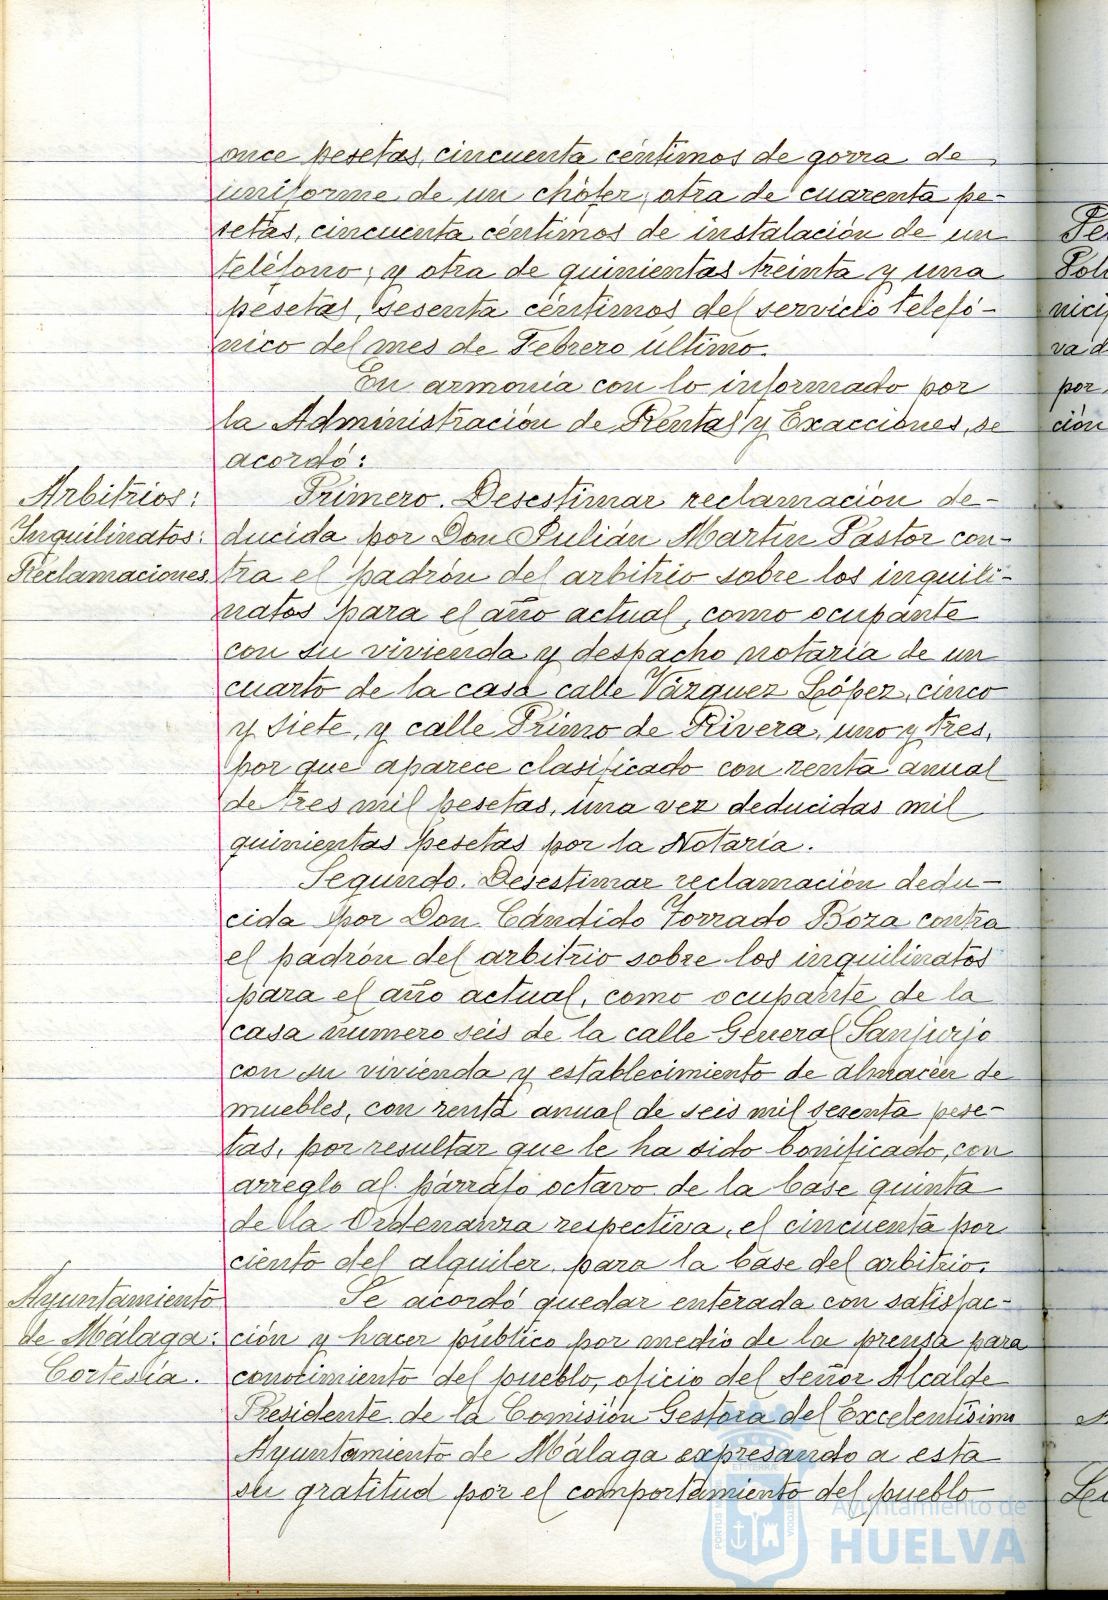 once pesetas, cincuenta céntimos de gorra de
uniforme de un chófer; otra de cuarenta pe-
setas, cincuenta céntimos de instalación de un
teléfono; y otra de quinientas treinta y una
pesetas, sesenta céntimos del servicio telefó-
nico del mes de Febrero último.
En armonía con lo informado por
la Administración de Rentas y Exacciones, se
acordó:
Arbitrios:
Inquilinatos:
Reclamaciones.
Primero. Desestimar reclamación de-
ducida por Don Julián Martín Pastor con-
tra el padrón del arbitrio sobre los inquili-
natos para el año actual, como ocupante
con su vivienda y despacho notaría de un
cuarto de la casa calle Vázquez López, cinco
y siete, y calle Primo de Rivera, uno y tres,
por que aparece clasificado con renta anual
de tres mil pesetas, una vez deducidas mil
quinientas pesetas por la Notaría.
Segundo. Desestimar reclamación dedu-
cida por Don Cándido Torrado Boza contra
el padrón del arbitrio sobre los inquilinatos
para el año actual, como ocupante de la
casa número seis de la calle General Sanjurjo
con su vivienda y establecimiento de almacén de
muebles, con renta anual de seis mil sesenta pese-
tas, por resultar que le ha sido bonificado, con
arreglo al párrafo octavo de la base quinta
de la Ordenanza respectiva, el cincuenta por
ciento del alquiler para la base del arbitrio.
Ayuntamiento
de Málaga:
Cortesía.
Se acordó quedar enterada con satisfac-
ción y hacer público por medio de la prensa para
conocimiento del pueblo, oficio del Señor Alcalde
Presidente de la Comisión Gestora del Excelentísimo
Ayuntamiento de Málaga expresando a esta
su gratitud por el comportamiento del pueblo
Ayuntamiento de
HUELVA